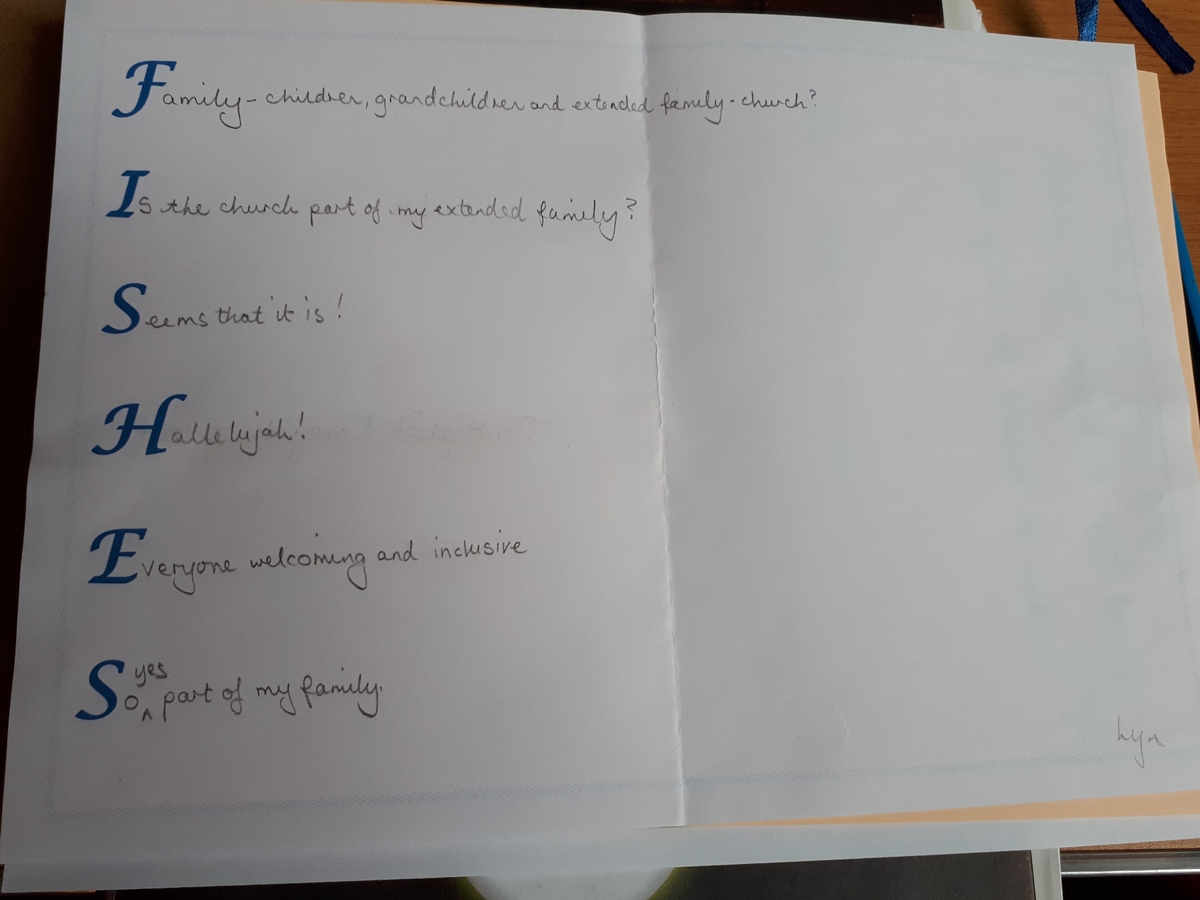 Family - children, grandchildren and extended family - church?
Is the church part of my extended family?
Seems that it is!
Hallelujah!
Everyone welcoming and inclusive
So yes part of my family.
Lyn